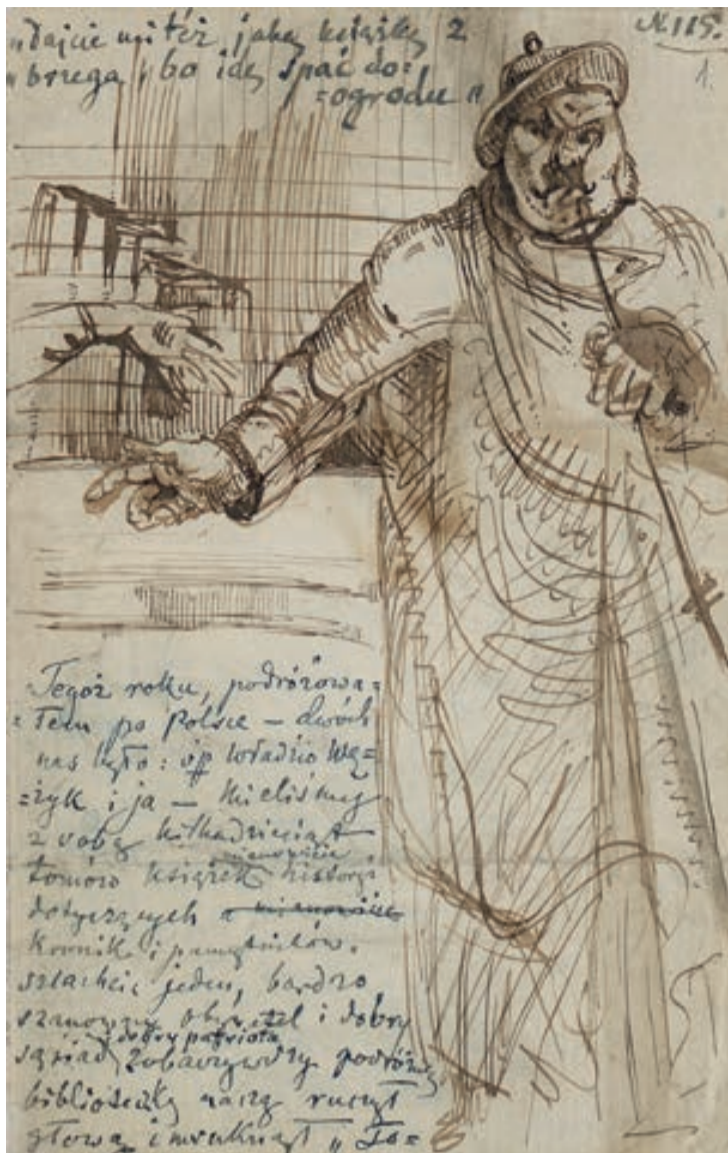 „dajcie mi też jaką książkę z
„brzega, bo idę spać do=
=ogrodu"
N. 115.
1.
Tegoż roku, podróżowa=
=łem po Polsce – dwóch
nas było: śp Władzio Wę=
=żyk i ja – Mieliśmy
z sobą kilkadziesiąt
mianowicie
tomów książek history:
dotyczących a mianowicie
Kronik i pamiętników.
szlachcic jeden, bardzo
szanowny obywatel i dobry
i dobry patriota
sąsiad, zobaczywszy podróżną
biblioteczkę naszą ruszył
głową i mruknął „To=